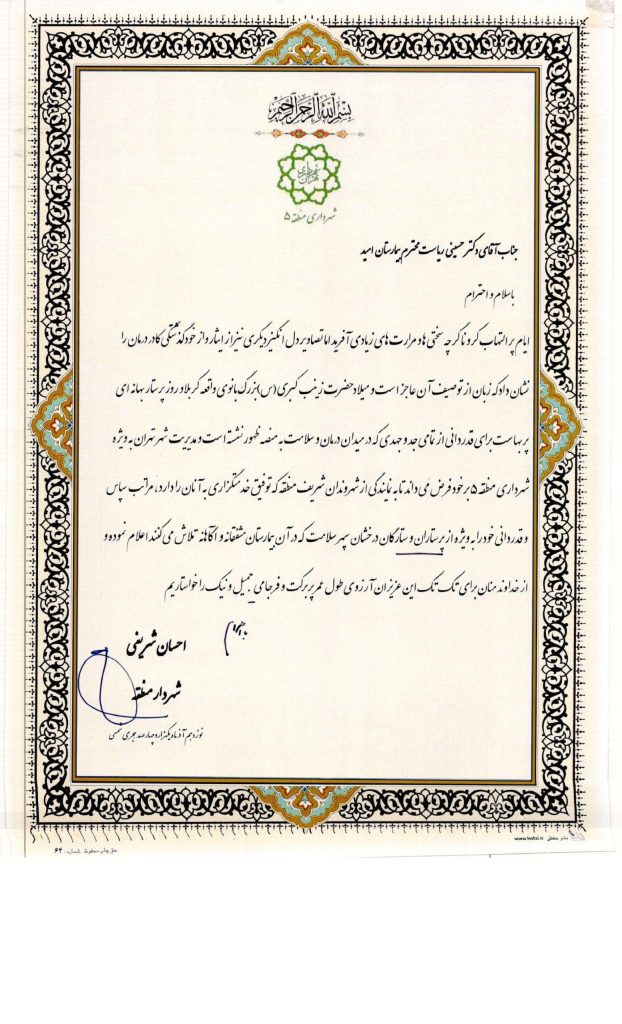 بسم الله الرحمن الرحیم
شهرداری تهران
شهرداری منطقه ۵
جناب آقای دکتر حسینی ریاست محترم بیمارستان امید
باسلام و احترام
ایام پر التهاب کرونا گرچه سختی ها و مرارت های زیادی آفرید اما تصاویر دل انگیز دیگری نیز از ایثار و از خودگذشتگی کادر درمان را
نشان داد که زبان از توصیف آن عاجز است و میلاد حضرت زینب کبری (س) بزرگ بانوی واقعه کربلا و روز پرستار بهانه ای
پر بهاست برای قدردانی از تمامی جد و جهدی که در میدان درمان و سلامت به منصه ظهور نشسته است و مدیریت شهر تهران به ویژه
شهرداری منطقه ۵ بر خود فرض می داند تا به نمایندگی از شهروندان شریف منطقه که توفیق خدمتگزاری به آنان را دارد، مراتب سپاس
و قدردانی خود را به ویژه از پرستاران و ستارگان درخشان سپهر سلامت که در آن بیمارستان مشفقانه و آگاهانه تلاش می کنند اعلام نموده و
از خداوند منان برای تک تک این عزیزان آرزوی طول عمر پر برکت و فرجامی جمیل و نیک را خواستاریم
احسان شریفی
شهردار منطقه
نوزدهم آذرماه یکهزار و چهارصد هجری شمسی
www.hafzi.ir
حق چاپ محفوظ شماره: ۶۲